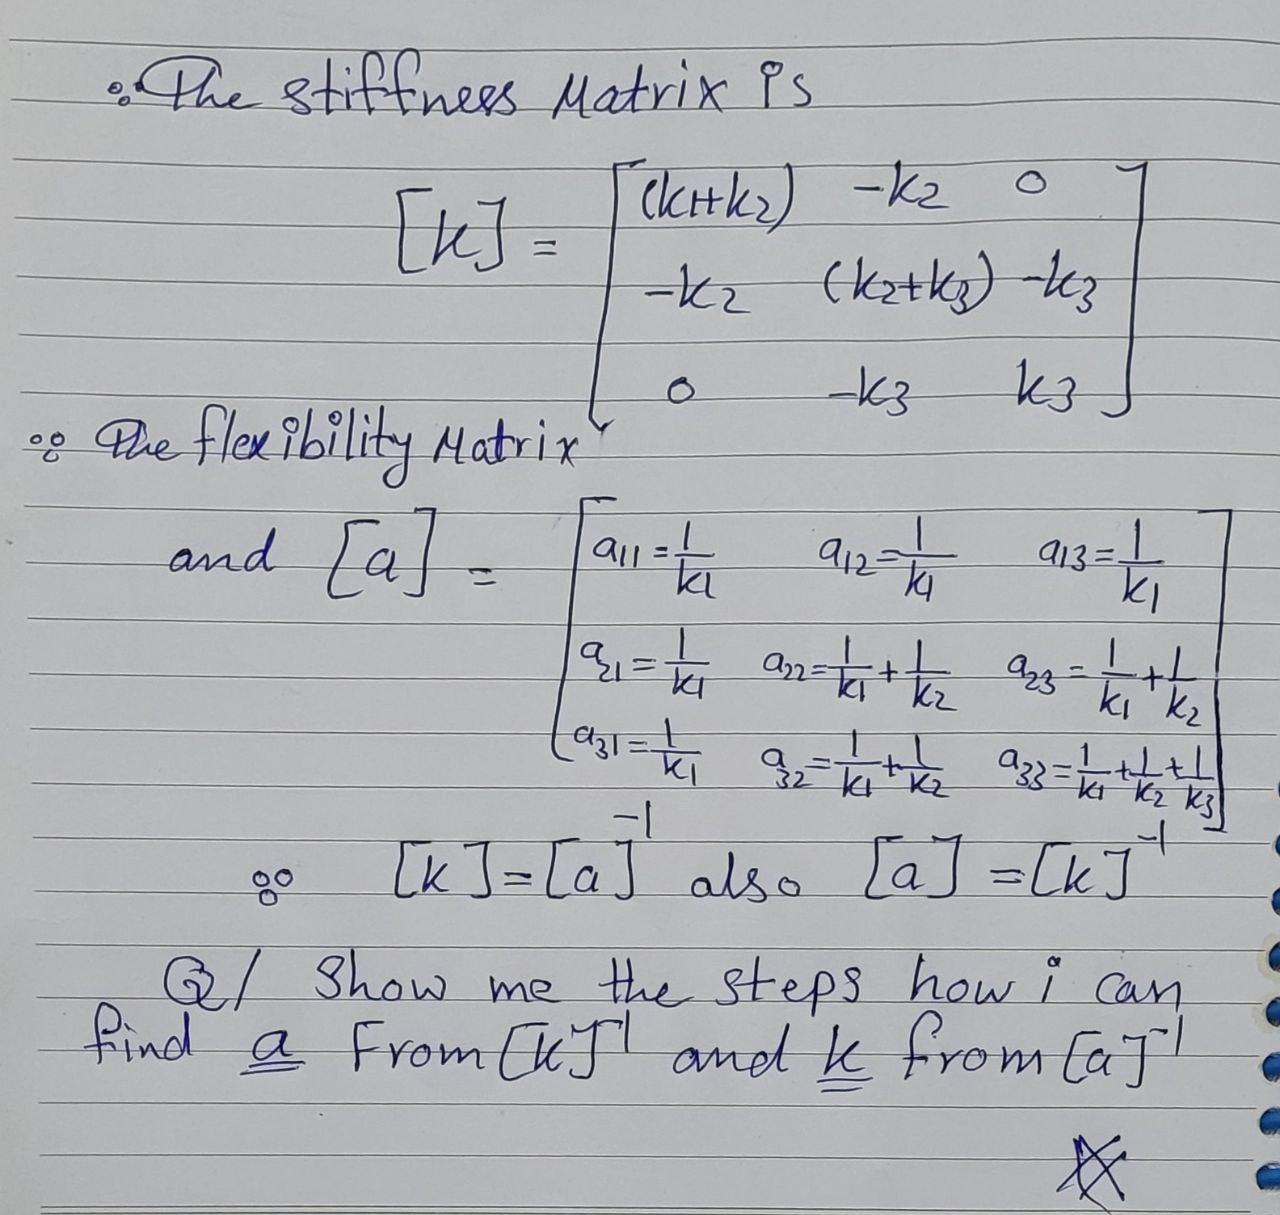 ∴ The stiffness Matrix is
[k] = [ (k1+k2) -k2 0
-k2 (k2+k3) -k3
0 -k3 k3 ]
∴ The flexibility Matrix
and [a] = [ a11 = 1/k1 a12 = 1/k1 a13 = 1/k1
a21 = 1/k1 a22 = 1/k1 + 1/k2 a23 = 1/k1 + 1/k2
a31 = 1/k1 a32 = 1/k1 + 1/k2 a33 = 1/k1 + 1/k2 + 1/k3 ]
∵ [k] = [a]^-1 also [a] = [k]^-1
Q/ Show me the steps how i can
find a From [k]^-1 and k from [a]^-1